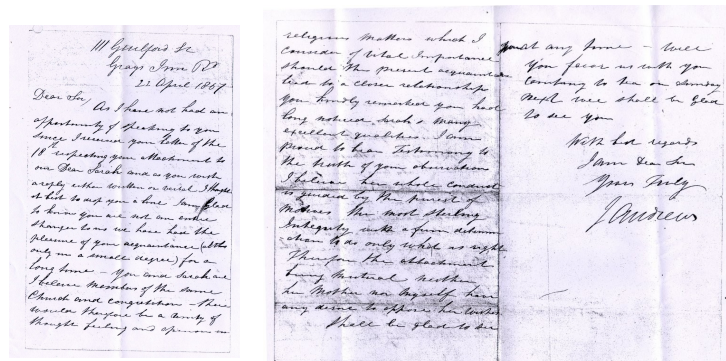 111 Guilford St
Grays Inn Rd
22 April 1867
Dear Sir
As I have not had an
opportunity of speaking to you
since I received your letter of the
18th respecting your attachment to
our Dear Sarah and as you wish
a reply either written or verbal I thought
it best to say you a line I am glad
to know you are not an entire
stranger to us we have had the
pleasure of your acquaintance (altho
only in a small degree) for a
long time - you and Sarah are
I believe members of the same
Church and congregation - there
would therefore be a unity of
thought feeling and opinion in
religious matters which I
consider of vital importance
should the present acquaintance
lead to a closer relationship
you kindly remarked you had
long noticed Sarah's many
excellent qualities I am
proud to bear Testimony to
the truth of your observation
I believe her whole conduct
is guided by the purest of
motives the most sterling
Integrity with a firm determin
ation to do only what is right
Therefore the attachment
being mutual neither
her Mother nor myself have
any desire to oppose her wishes
Shall be glad to see
you at any time - Will
you favor us with your
company to tea on Sunday
next we shall be glad
to see you
With best regards
I am Dear Sir
Yours Truly
J Andrews